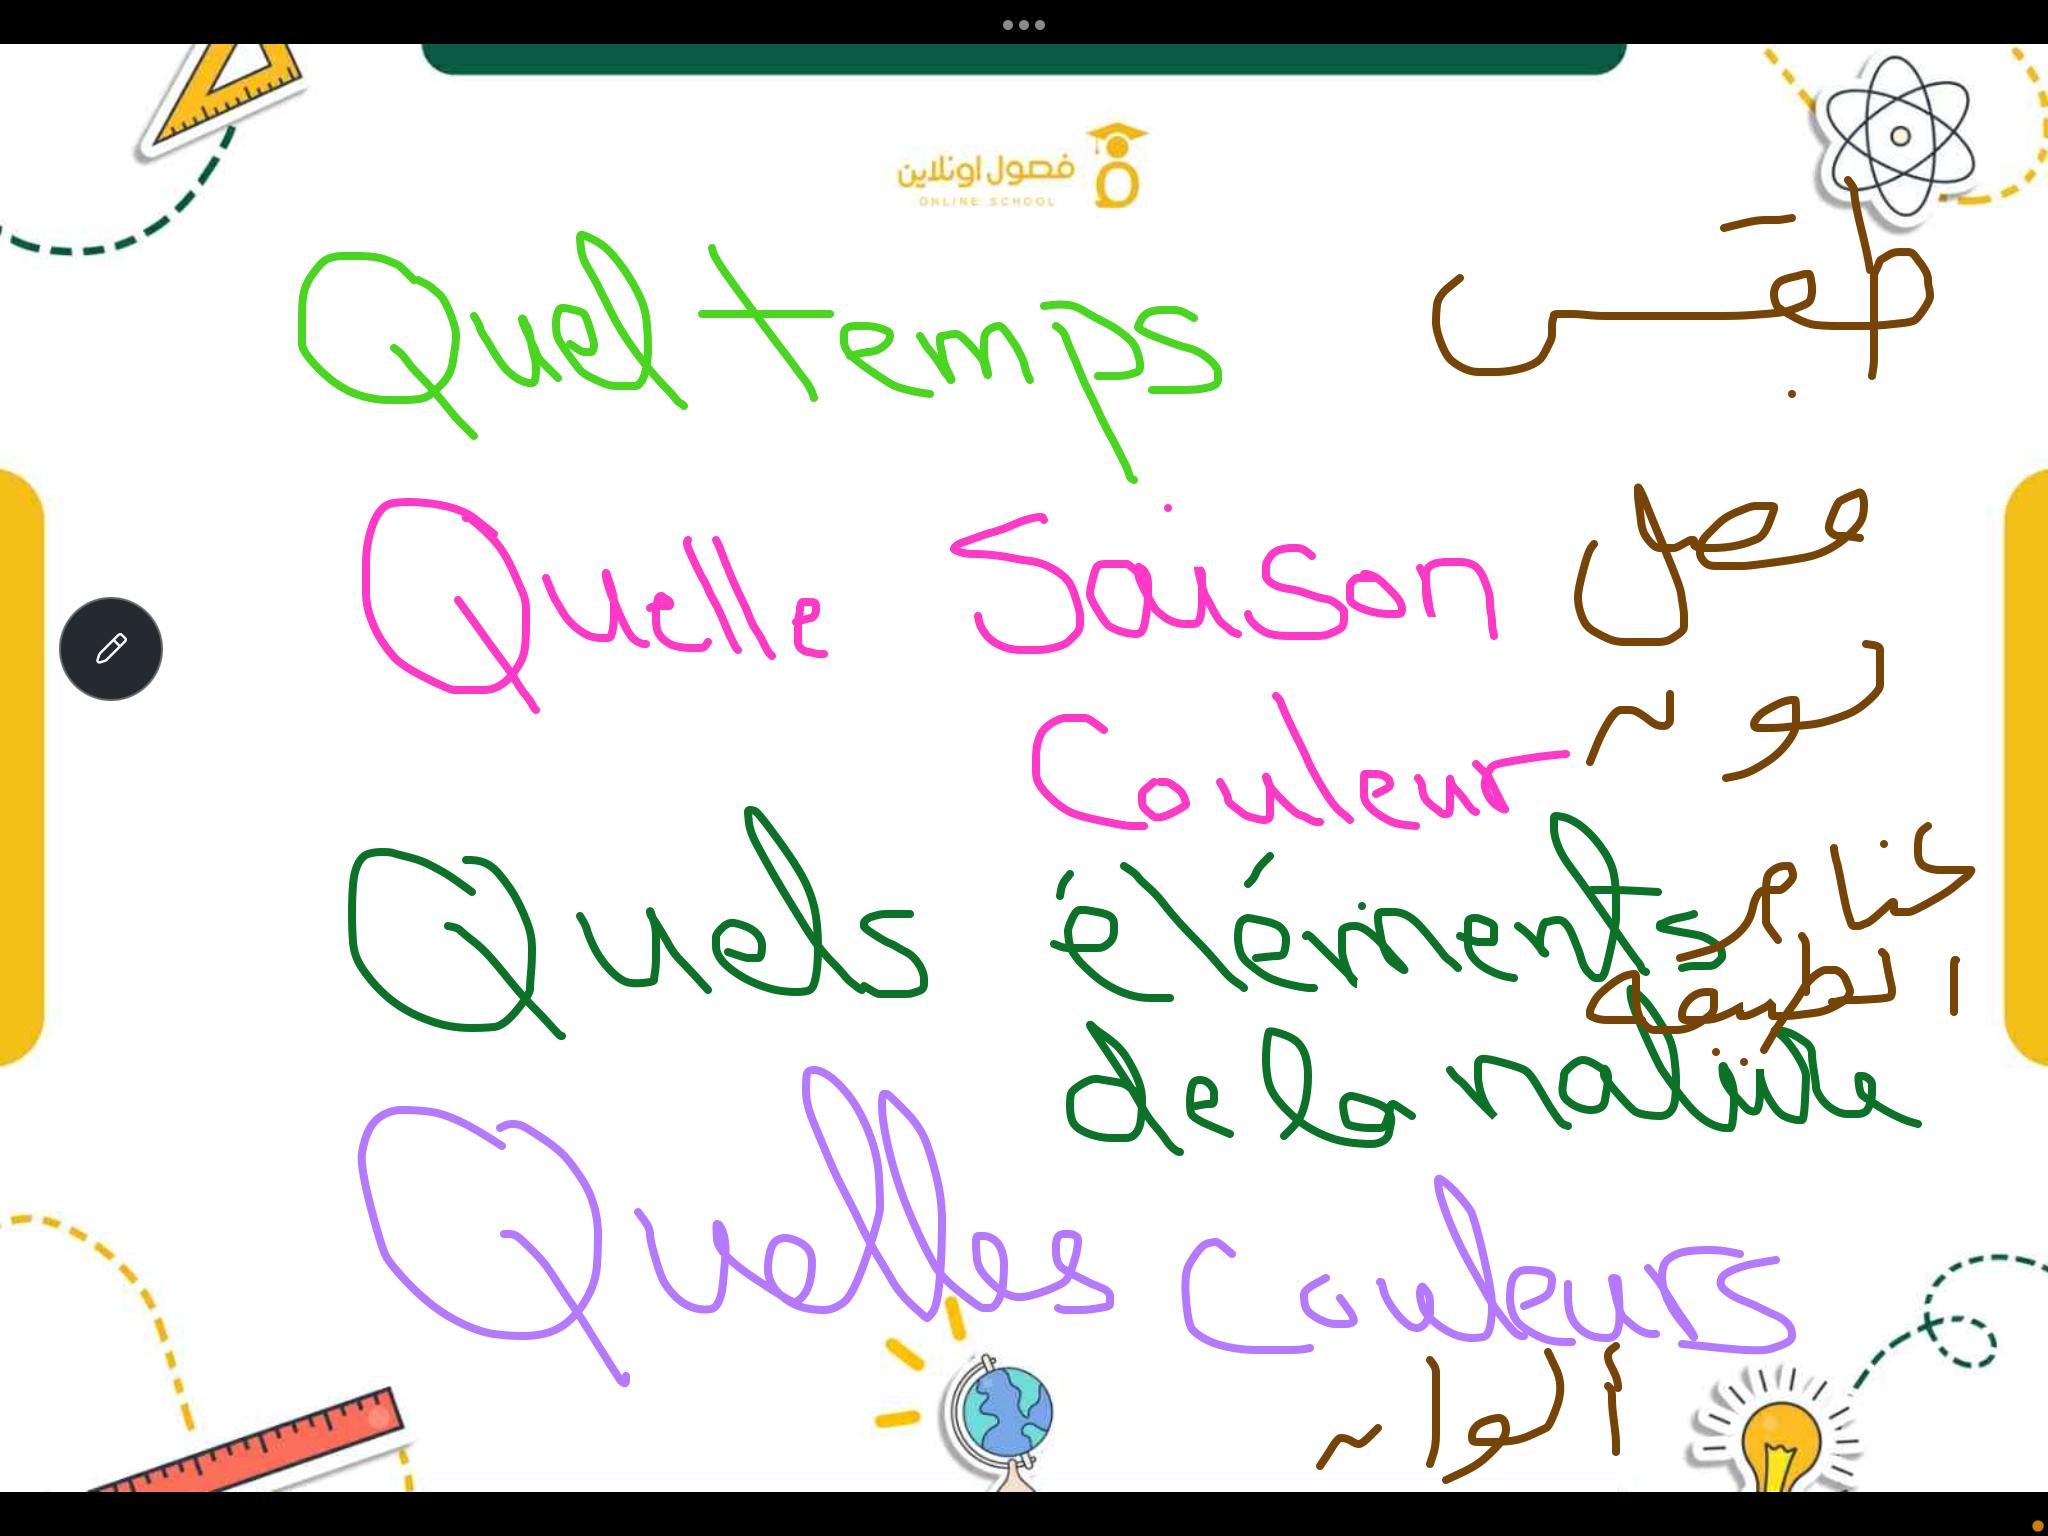 فصول اونلاين
ONLINE SCHOOL
Quel temps طقس
Quelle Saison فصل
Couleur لون
Quels éléments عناصر
de la nature الطبيعة
Quelles Couleurs
ألوان